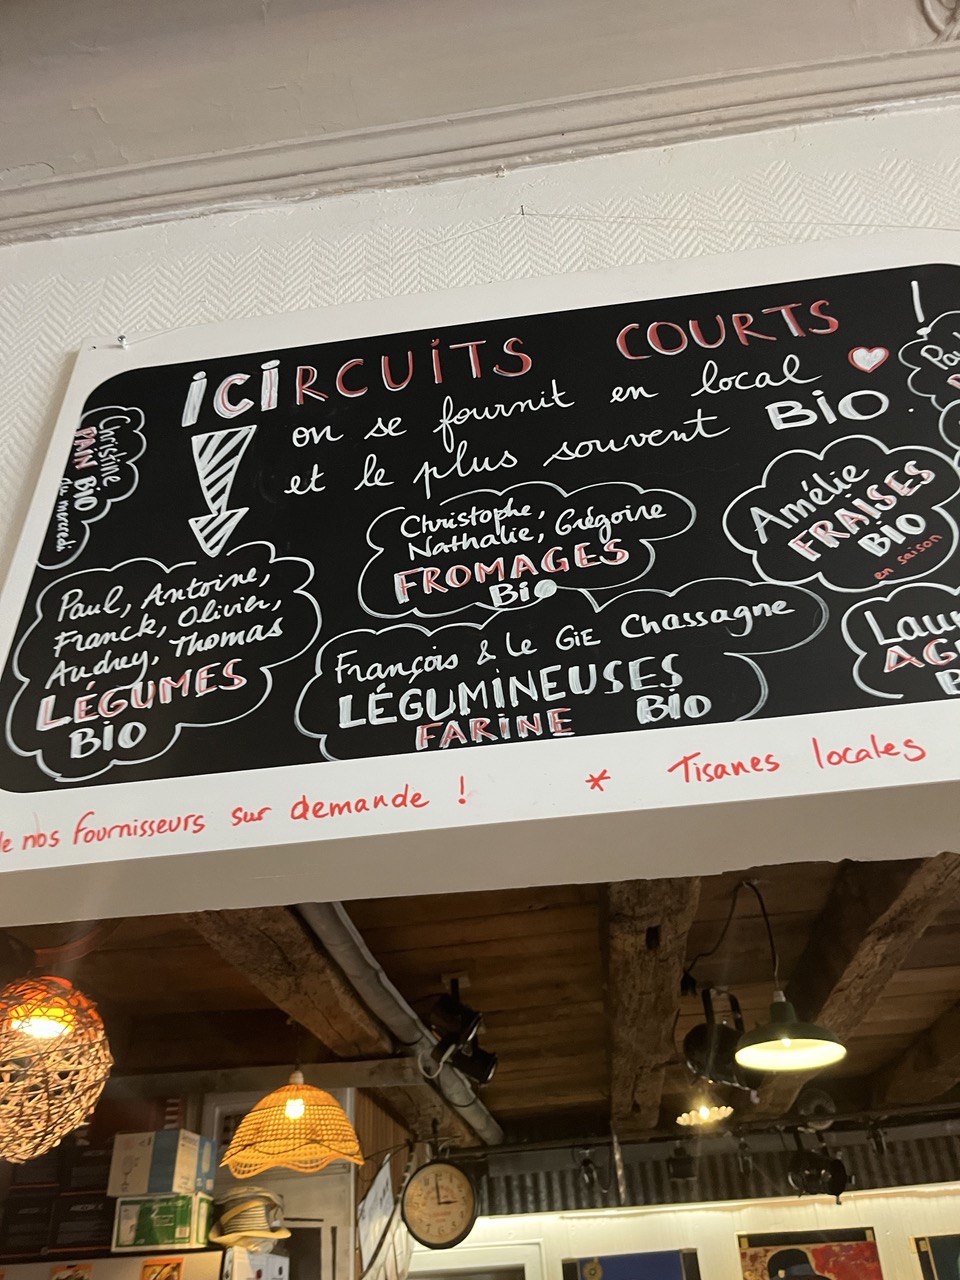 ICIRCUITS COURTS !
on se fournit en local
et le plus souvent BIO.
Christine
PAIN BIO
du mercredi
Paul, Antoine,
Franck, Olivier,
Audrey, Thomas
LÉGUMES
BIO
Christophe,
Nathalie, Grégoire
FROMAGES
BIO
François & le GIE Chassagne
LÉGUMINEUSES
FARINE BIO
Amélie
FRAISES
BIO
en saison
nos fournisseurs sur demande ! * Tisanes locales